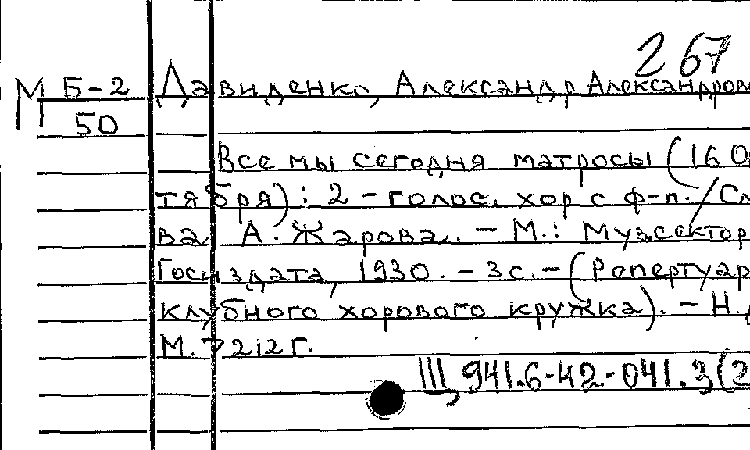 267
М Б-2 Давиденко, Александр Александров
50
Все мы сегодня матросы (16 О
тября): 2-голос. хор с ф-п. / Сл
ва А. Жарова. - М.: Музсектор
Госиздата, 1930. - 3с. - (Репертуар
клубного хорового кружка). - Н.
М. 7212 Г.
Щ 941.6-42-041.3(2